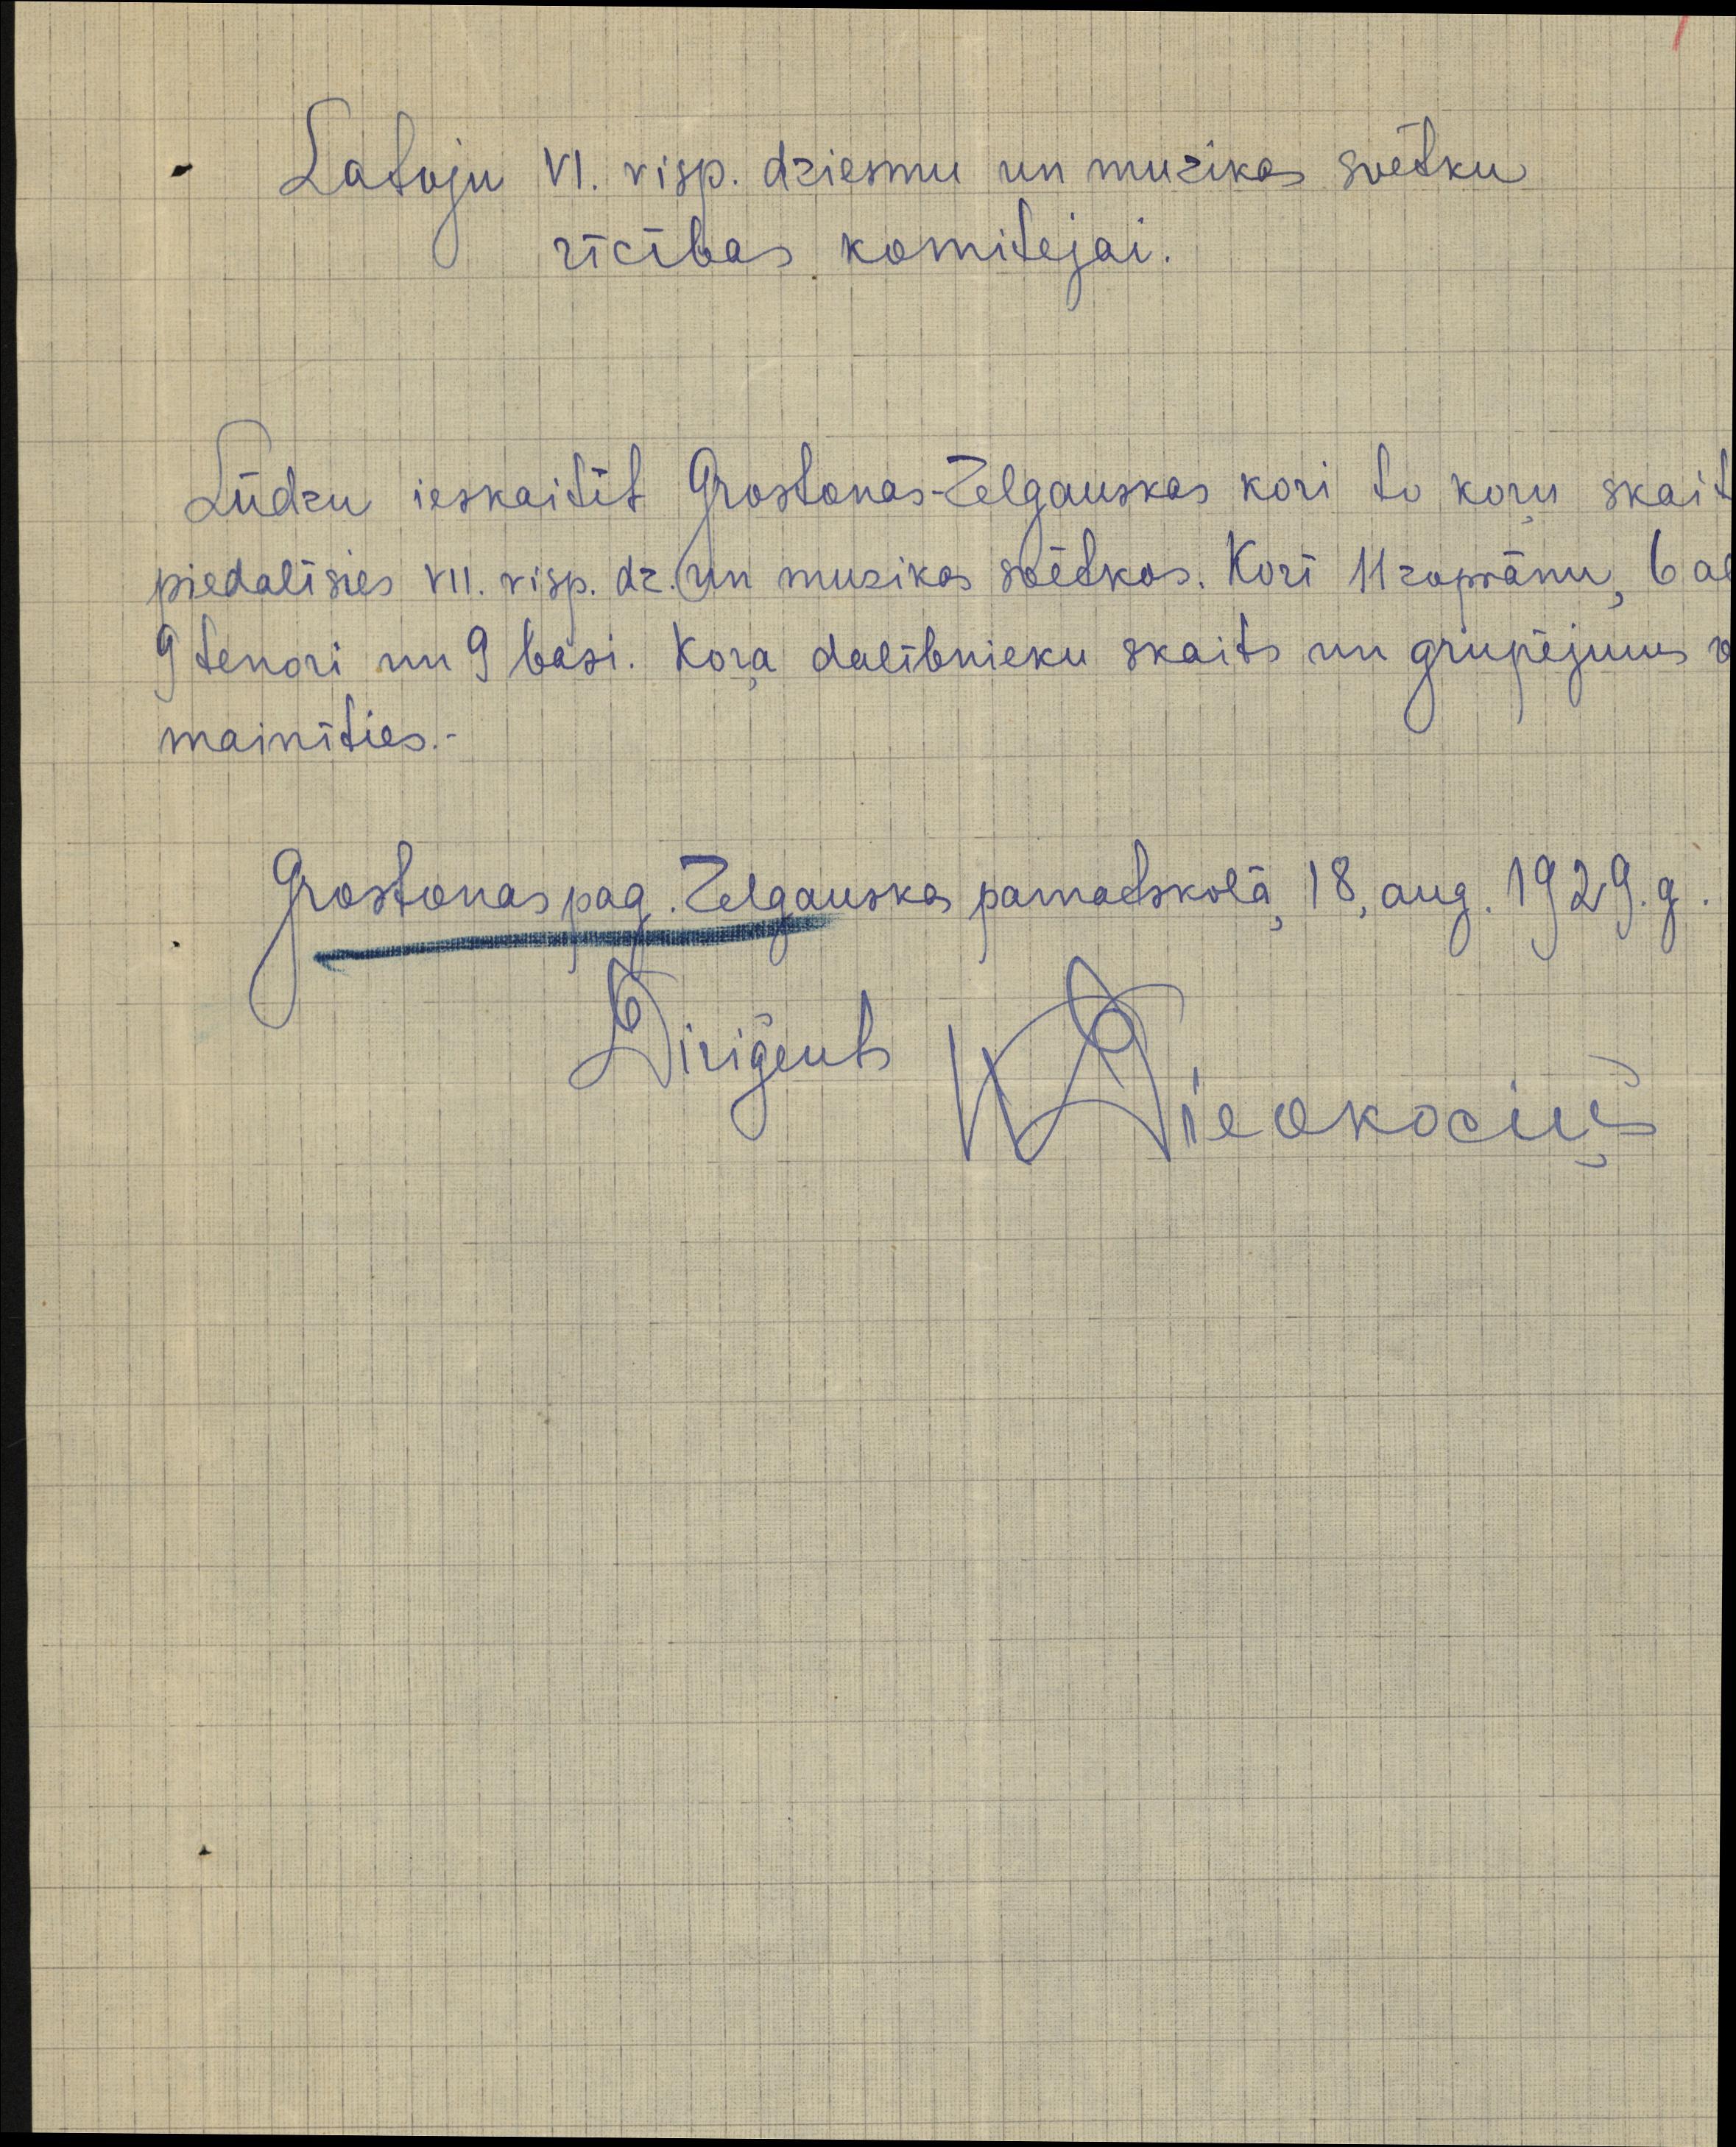 Latvju VI. visp. dziesmu un muzikas svētku
rīcības komitejai.
Lūdzu ieskaitīt Grostonas-Zelgauskas kori to koŗu skait
piedalīsies VII. visp. dz. un muzikas svētkos. Korī 11 soprānu, 6 al
9 tenori un 9 basi. Koŗa dalībnieku skaits un grupējums v
mainīties.-
Grostonas pag. Zelgauska pamatskolā, 18, aug. 1929. g.
Diriģents